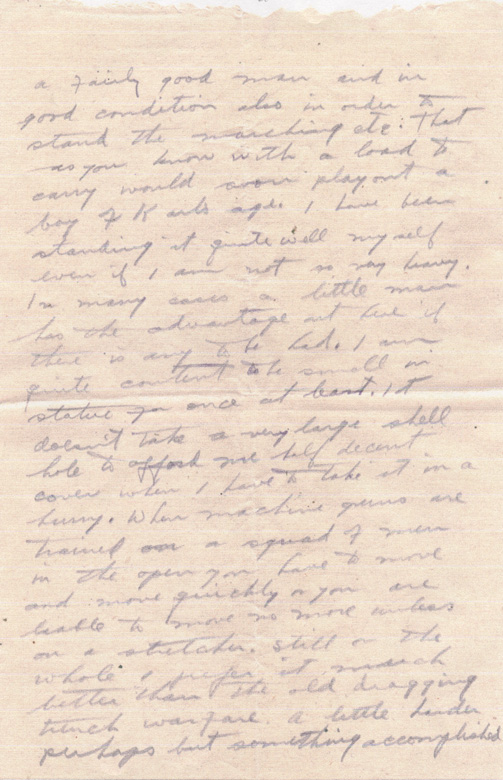 a fairly good man and in
good condition also in order to
stand the marching etc. That
as you know with a load to
carry would soon play out a
boy of K arls age. I have been
standing it quite well myself
even if I am not so very heavy.
In many cases a little man
has the advantage out here if
there is any to be had. I am
quite content to be small in
statue for once at least. It
doesn't take a very large shell
hole to afford me half decent
cover when I have to take it in a
hurry. When machine guns are
trained on a squad of men
in the open you have to move
and move quickly or you are
liable to move no more unless
on a stretcher. Still on the
whole I prefer it much
better than the old dragging
trench warfare. A little harder
perhaps but something accomplished